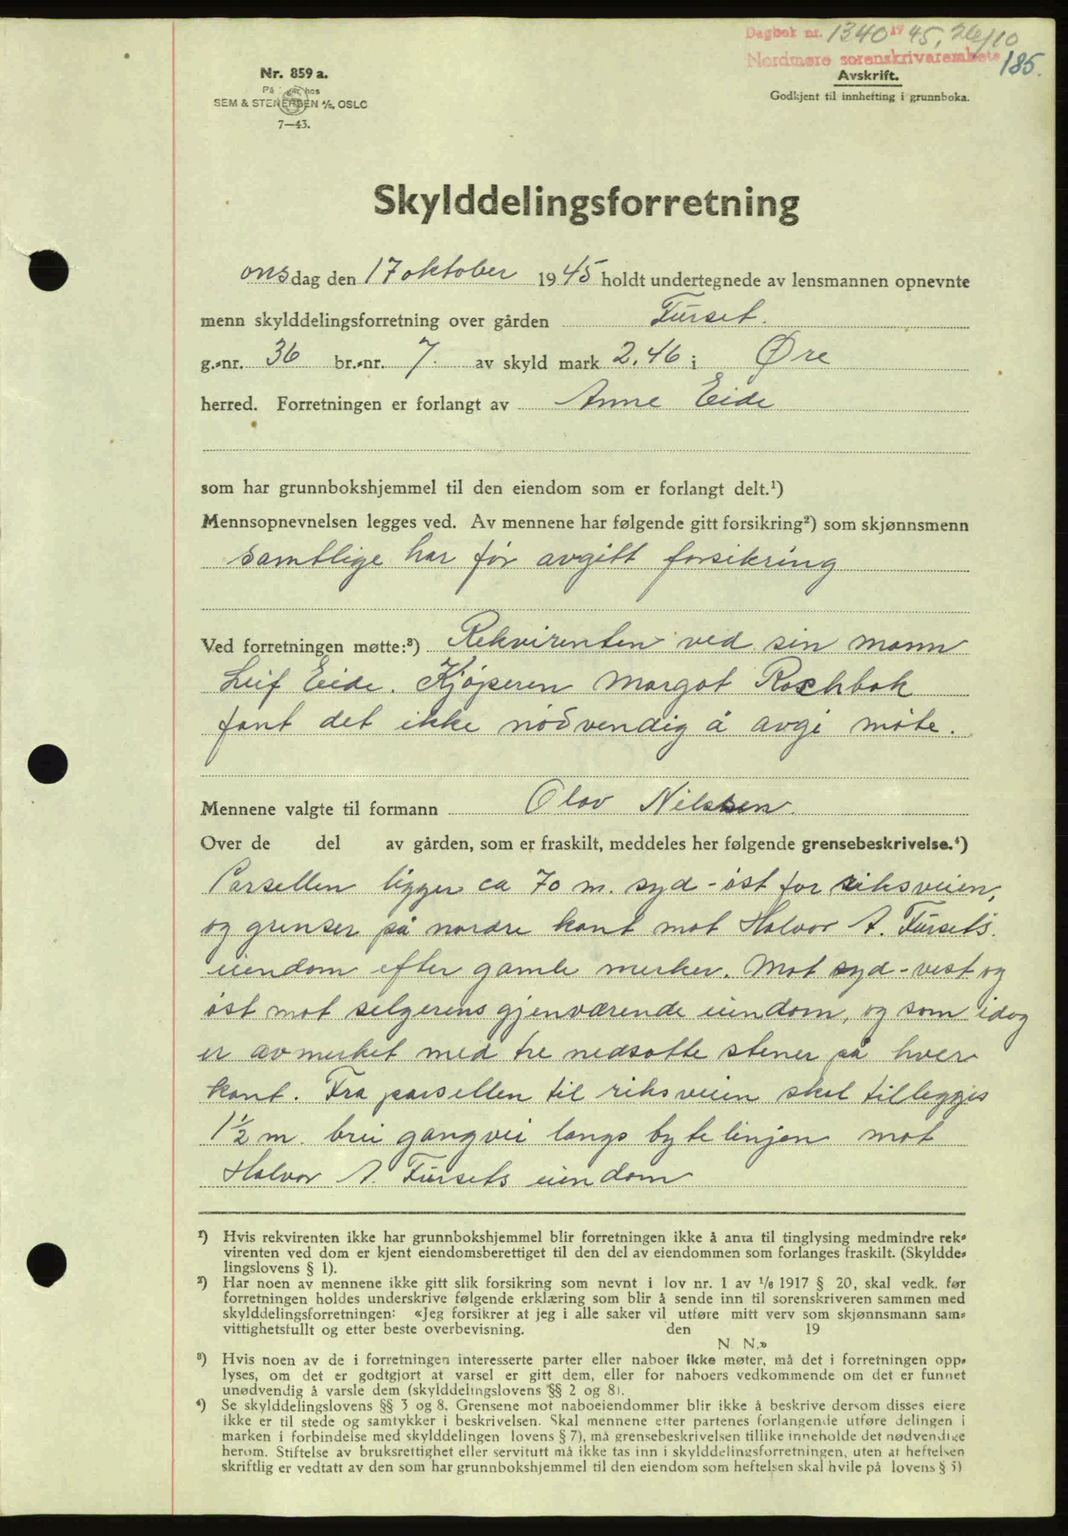 Dagbok nr. 1340 1945, 26/10
Nordmøre sorenskrivarembete 185.
Nr. 859 a.
På lager hos
SEM & STENERSEN A/S, OSLO
7—43.
Avskrift.
Godkjent til innhefting i grunnboka.
Skylddelingsforretning
onsdag den 17 oktober 1945 holdt undertegnede av lensmannen opnevnte
menn skylddelingsforretning over gården Furset.
g.-nr. 36 br.-nr. 7. av skyld mark 2.46 i Øre
herred. Forretningen er forlangt av Anne Eide
som har grunnbokshjemmel til den eiendom som er forlangt delt.¹)
Mennsopnevnelsen legges ved. Av mennene har følgende gitt forsikring²) som skjønnsmenn
samtlige har før avgitt forsikring
Ved forretningen møtte:³) Rekvirenten ved sin mann
Leif Eide. Kjøperen Margot Rochbak
fant det ikke nødvendig å avgi møte.
Mennene valgte til formann Olav Nilssen.
Over de del av gården, som er fraskilt, meddeles her følgende grensebeskrivelse.⁴)
Parsellen ligger ca 70 m. syd-øst for riksveien,
og grenser på nordre kant mot Halvor A. Fursets
eiendom efter gamle merker. Mot syd-vest og
øst mot selgerens gjenværende eiendom, og som idag
er avmerket med tre nedsatte stener på hver
kant. Fra parsellen til riksveien skal tillegges
1½ m. brei gangvei langs bytelinjen mot
Halvor A. Fursets eiendom
¹) Hvis rekvirenten ikke har grunnbokshjemmel blir forretningen ikke å anta til tinglysing medmindre rek-
virenten ved dom er kjent eiendomsberettiget til den del av eiendommen som forlanges fraskilt. (Skyldde-
lingslovens § 1).
²) Har noen av mennene ikke gitt slik forsikring som nevnt i lov nr. 1 av 1/6 1917 § 20, skal vedk. før
forretningen holdes underskrive følgende erklæring som blir å sende inn til sorenskriveren sammen med
skylddelingsforretningen: «Jeg forsikrer at jeg i alle saker vil utføre mitt verv som skjønnsmann sam-
vittighetsfullt og etter beste overbevisning. den 19
N N.»
³) Hvis noen av de i forretningen interesserte parter eller naboer ikke møter, må det i forretningen opp-
lyses, om det er godtgjort at varsel er gitt dem, eller for naboers vedkommende om det er funnet
unødvendig å varsle dem (skylddelingslovens §§ 2 og 8).
⁴) Se skylddelingslovens §§ 3 og 8. Grensene mot naboeiendommer blir ikke å beskrive dersom disses eiere
ikke er til stede og samtykker i beskrivelsen. Skal mennene etter partenes forlangende utføre delingen i
marken i forbindelse med skylddelingen lovens § 7), må grensebeskrivelsen tillike inneholde det nødvendige
herom. Stiftelse av bruksrettighet eller servitutt må ikke tas inn i skylddelingsforretningen, uten at heftelsen
skriftlig er vedtatt av den som har grunnbokshjemmel til den eiendom som heftelsen skal hvile på lovens § 5)